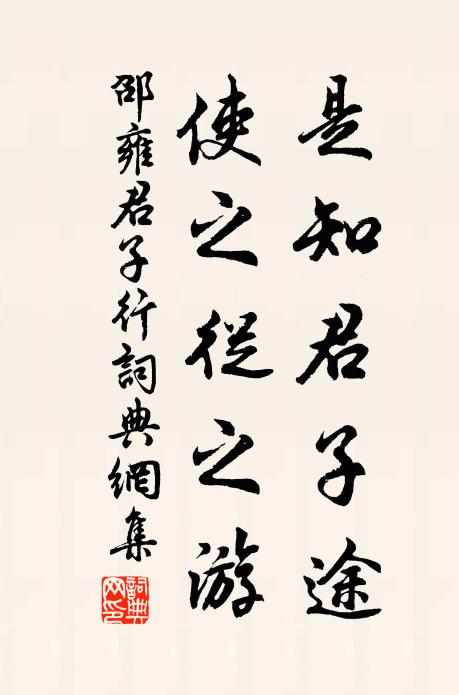 是知君子途
使之從之游
邵雍君子行詞典網集
詞典網印